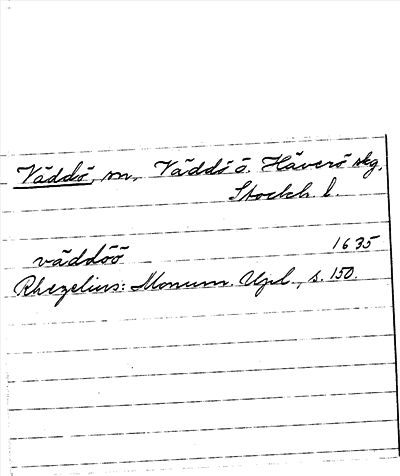 Väddö, sn, Väddö ö. Häverö skg,
Stockh. l.
väddöö 1635
Rhezelius: Monum. Upl., s. 150.